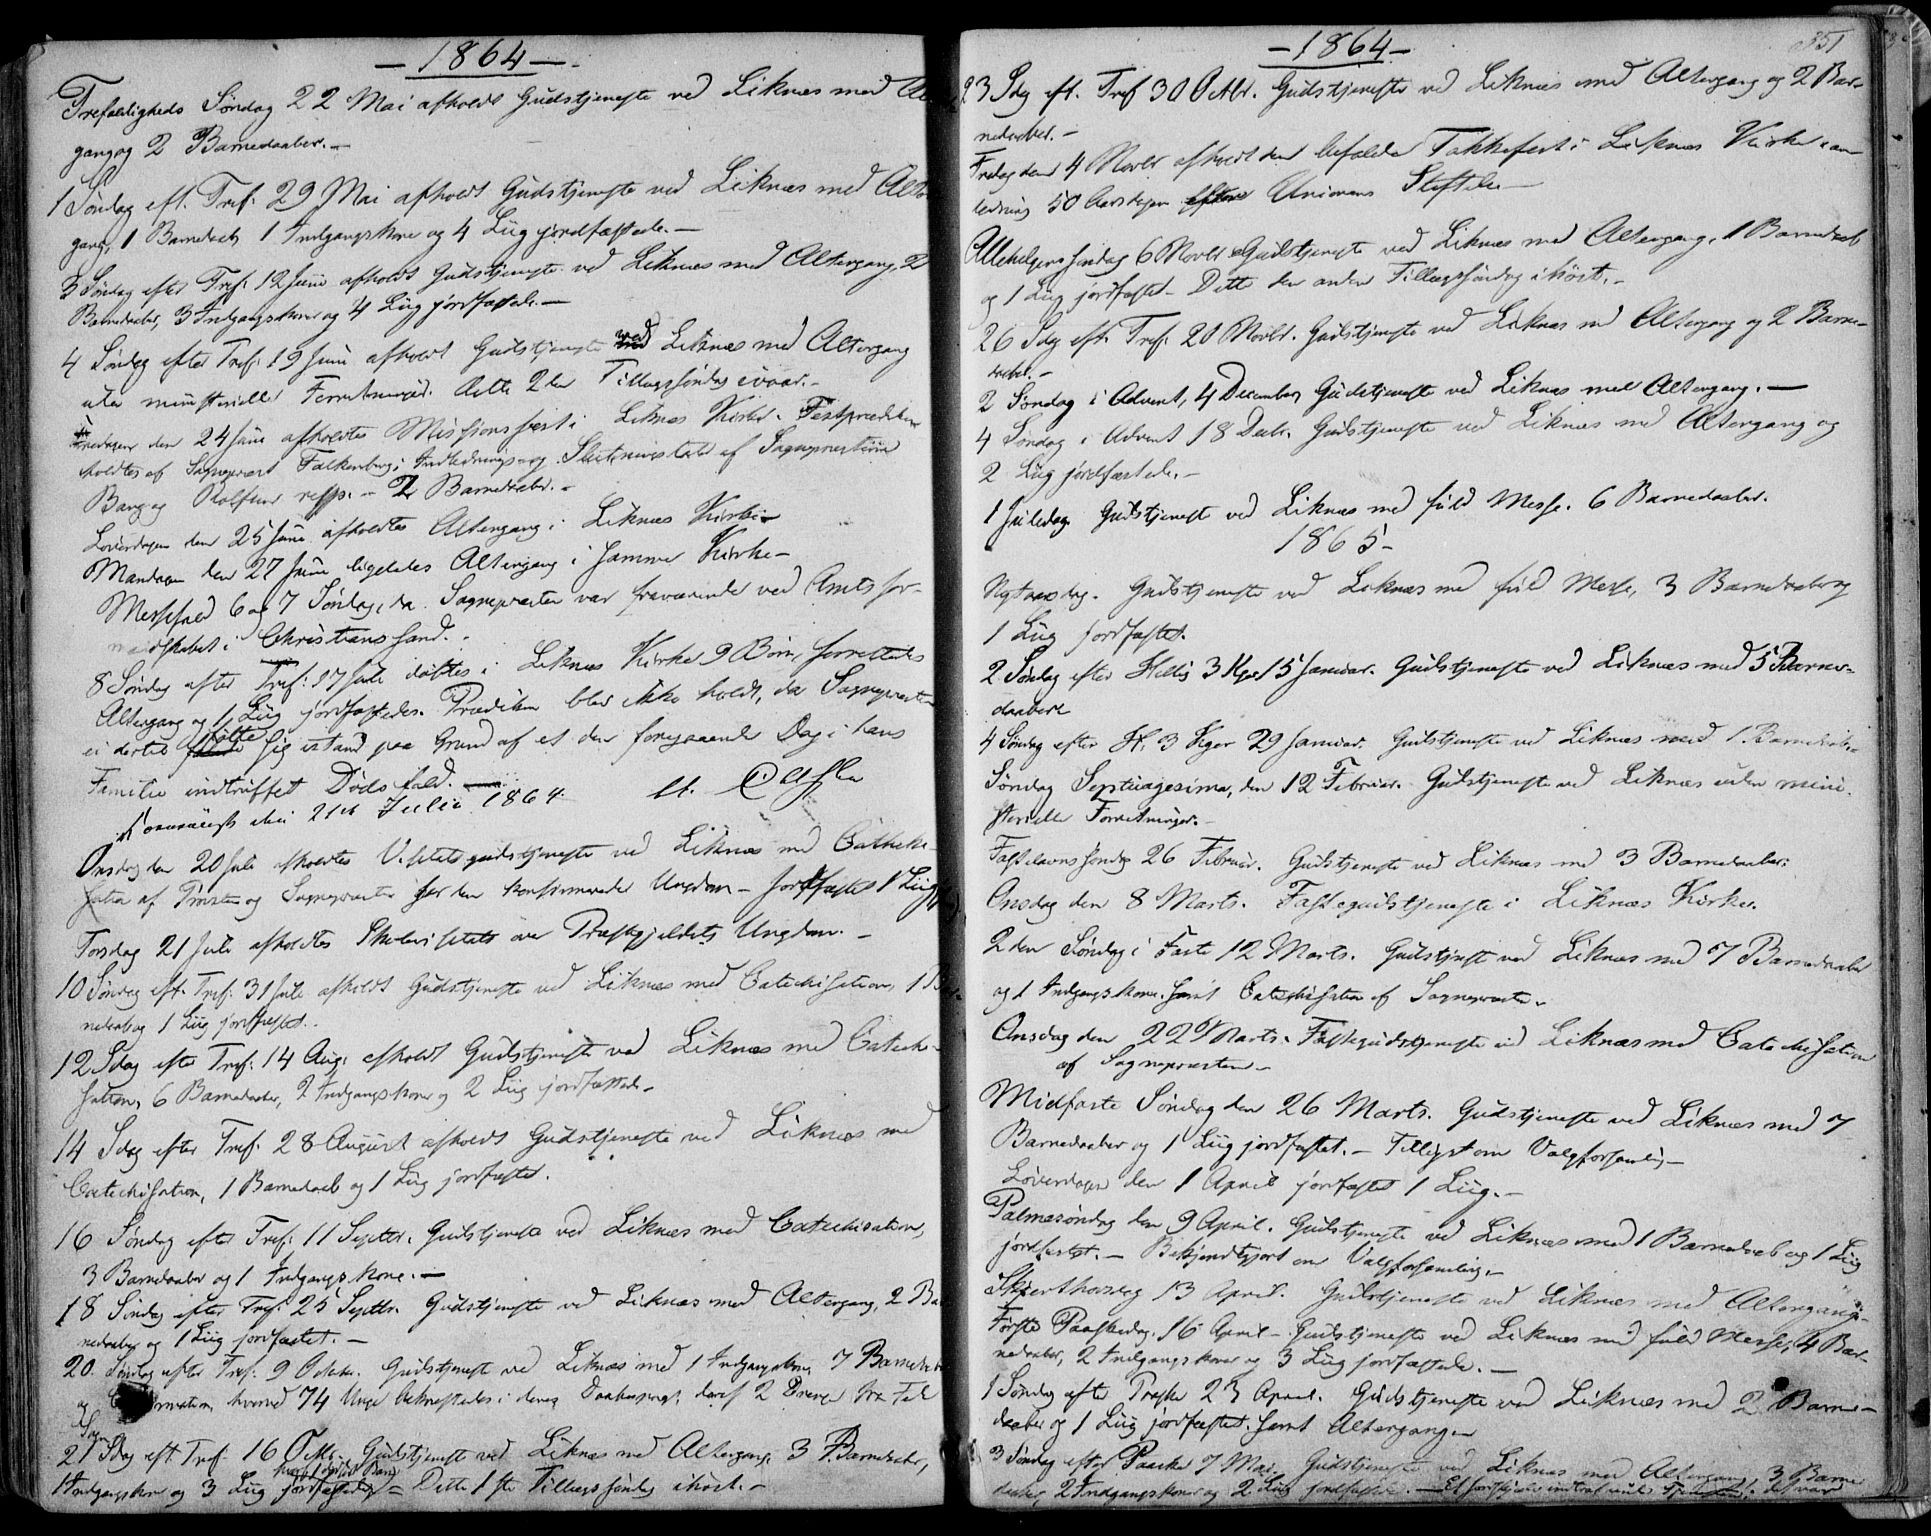 — 1864 —
Trefoldigheds Søndag 22 Mai afholdt Gudstjeneste ved Liknæs med Al
gang og 2 Barnedaaber. —
1 Søndag eft. Tref. 29 Mai afholdt Gudstjeneste ved Liknæs med Alter
gang, 1 Barnedaab, 1 Indgangskone og 4 Liig jordfæstede. —
3 Søndag efter Tref. 12 Juni afholdt Gudstjeneste ved Liknæs med Altergang, 2
Barnedaaber, 3 Indgangskoner og 4 Liig jordfæstede. —
4 Søndag efter Tref. 19 Juni afholdt Gudstjeneste ved Liknæs med Altergang
uden ministerielle Forretninger. Dette 2den Tillægssøndag i vaar. —
Fredagen den 24 Juni afholdtes Missionsfest i Liknæs Kirke. Festprædiken
holdtes af Sognepræst Falkenberg; Indlednings- og Slutningstale af Sognepræsterne
Bang og Rolfsen resp. — 2 Barnedaaber. —
Løverdagen den 25 Juni afholdtes Altergang i Liknæs Kirke —
Mandagen den 27 Juni ligeledes Altergang i samme Kirke —
Messefald 6 og 7 Søndag, da Sognepræsten var fraværende ved Amtsfor-
mandskabet i Christianssand. —
8 Søndag efter Tref. 17 Juli døbtes i Liknæs Kirke 9 Børn, forrettedes
Altergang og 1 Liig jordfæstedes. Prædiken blev ikke holdt, da Sognepræsten
ei dertil følte sig istand paa Grund af et den foregaaende Dag i hans
Familie indtruffet Dødsfald.
21de Julii 1864
Onsdag den 20 Juli afholdtes Visitatsgudstjeneste ved Liknæs med Catheki-
sation af Provsten og Sognepræsten for den konfirmerede Ungdom — Jordfæstet 1 Liig
Torsdag 21 Juli afholdtes Skolevisitats over Præstegjeldets Ungdom. —
10 Søndag eft. Tref. 31 Juli afholdt Gudstjeneste ved Liknæs med Catechisation, 1 Bar-
nedaab og 1 Liig jordfæstet.
12 Sdag efter Tref. 14 Aug. afholdt Gudstjeneste ved Liknæs med Catechi-
sation, 6 Barnedaaber, 2 Indgangskoner og 2 Liig jordfæstede —
14 Sdag efter Tref. 28 August afholdt Gudstjeneste ved Liknæs med
Catechisation, 1 Barnedaab og 1 Liig jordfæstet.
16 Søndag efter Tref. 11 Septbr. Gudstjeneste ved Liknæs med Catechisation,
3 Barnedaaber og 1 Indgangskone. —
18 Søndag efter Tref. 25 Septbr. Gudstjeneste ved Liknæs med Altergang, 2 Bar
nedaaber og 1 Liig jordfæstet. —
20. Søndag efter Tref. 9 Octobr. Gudstjeneste ved Liknæs med 1 Indgangskone, 7 Barnedaaber
og Confirmation, hvorved 74 Unge bekræftedes i deres Daabspagt, deraf 2 Drenge fra Fede
Sogn
21 Sdag eft. Tref. 16 Octbr. Gudstjeneste ved Liknæs med Altergang, 3 Barnedaaber,
1 Indgangskone og 3 Liig jordfæstede — Dette 1ste Tillægssøndag i høst. —
— 1864 —
351
23 Sdg eft. Tref. 30 Octbr. Gudstjeneste ved Liknæs med Altergang og 2 Bar-
nedaaber. —
Fredag den 4 Novbr afholdt den befalede Takkefest i Liknæs Kirke i an-
ledning 50 Aarsdagen efter Unionens Stiftelse —
Allehelgens Søndag 6 Novbr Gudstjeneste ved Liknæs med Altergang, 1 Barnedaab
og 1 Liig jordfæstet. Dette den anden Tillægssøndag i høst. —
26 Sdg eft. Tref. 20 Novbr. Gudstjeneste ved Liknæs med Altergang og 2 Barne-
daaber. —
2 Søndag i Advent, 4 December, Gudstjeneste ved Liknæs med Altergang. —
4 Søndag i Advent 18 Decbr. Gudstjeneste ved Liknæs med Altergang og
2 Liig jordfæstede. —
1 Juledag Gudstjeneste ved Liknæs med fuld Messe. 6 Barnedaaber.
1865 —
Nytaarsdag. Gudstjeneste ved Liknæs med fuld Messe, 3 Barnedaaber og
1 Liig jordfæstet.
2 Søndag efter Hellig 3 Kgr 15 Januar. Gudstjeneste ved Liknæs med 5 Barne-
daaber
4 Søndag efter H. 3 Kger 29 Januar. Gudstjeneste ved Liknæs med 1 Barnedaab.
Søndag Septuagesima, den 12 Februar. Gudstjeneste ved Liknæs uden mini-
sterielle Forretninger. —
Fastelavns Søndag 26 Februar. Gudstjeneste ved Liknæs med 3 Barnedaaber.
Onsdag den 8 Marts. Fastegudstjeneste i Liknæs Kirke.
2den Søndag i Faste 12 Marts. Gudstjeneste ved Liknæs med 7 Barnedaaber
og 1 Indgangskone. Samt Catechisation af Sognepræsten.
Onsdag den 22 Marts. Fastegudstjeneste ved Liknæs med Catechisation
af Sognepræsten —
Midfaste Søndag den 26 Marts. Gudstjeneste ved Liknæs med 7
Barnedaaber og 1 Liig jordfæstet. — Tillyst om Valgforsamling —
Løverdagen den 1 April jordfæstet 1 Liig. —
Palmesøndag den 9 April. Gudstjeneste ved Liknæs med 1 Barnedaab og 1 Liig
jordfæstet. — Bekjendtgjort om Valgforsamling. —
Skjærthorsdag 13 April. Gudstjeneste ved Liknæs med Altergang. —
Første Paaskedag. 16 April — Gudstjeneste ved Liknæs med fuld Messe, 4 Bar-
nedaaber, 2 Indgangskoner og 3 Liig jordfæstede. —
1 Søndag efter Paaske 23 April. Gudstjeneste ved Liknæs med 2 Barne-
daaber og 1 Liig jordfæstet. Samt Altergang —
3 Søndag efter Paaske 7 Mai. Gudstjeneste ved Liknæs med Altergang, 3 Barne
daaber, 2 Indgangskoner og 2 Liig jordfæstede. —